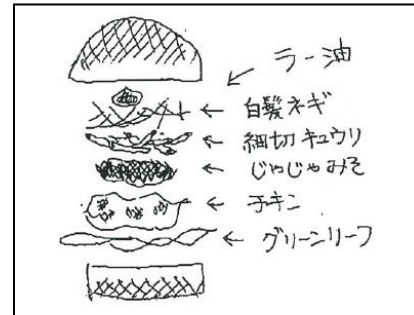 ラー油
白髪ネギ
細切キュウリ
じゃじゃみそ
チキン
グリーンリーフ